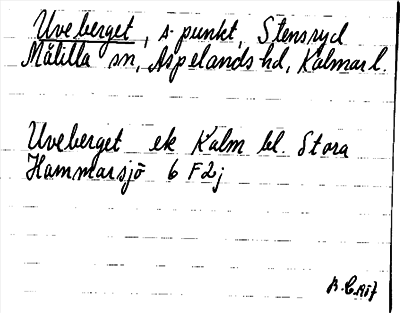 Uveberget, s. punkt, Stensryd
Målilla sn, Aspelands hd, Kalmar l.
Uveberget ek Kalm bl. Stora
Hammarsjö 6 F2j